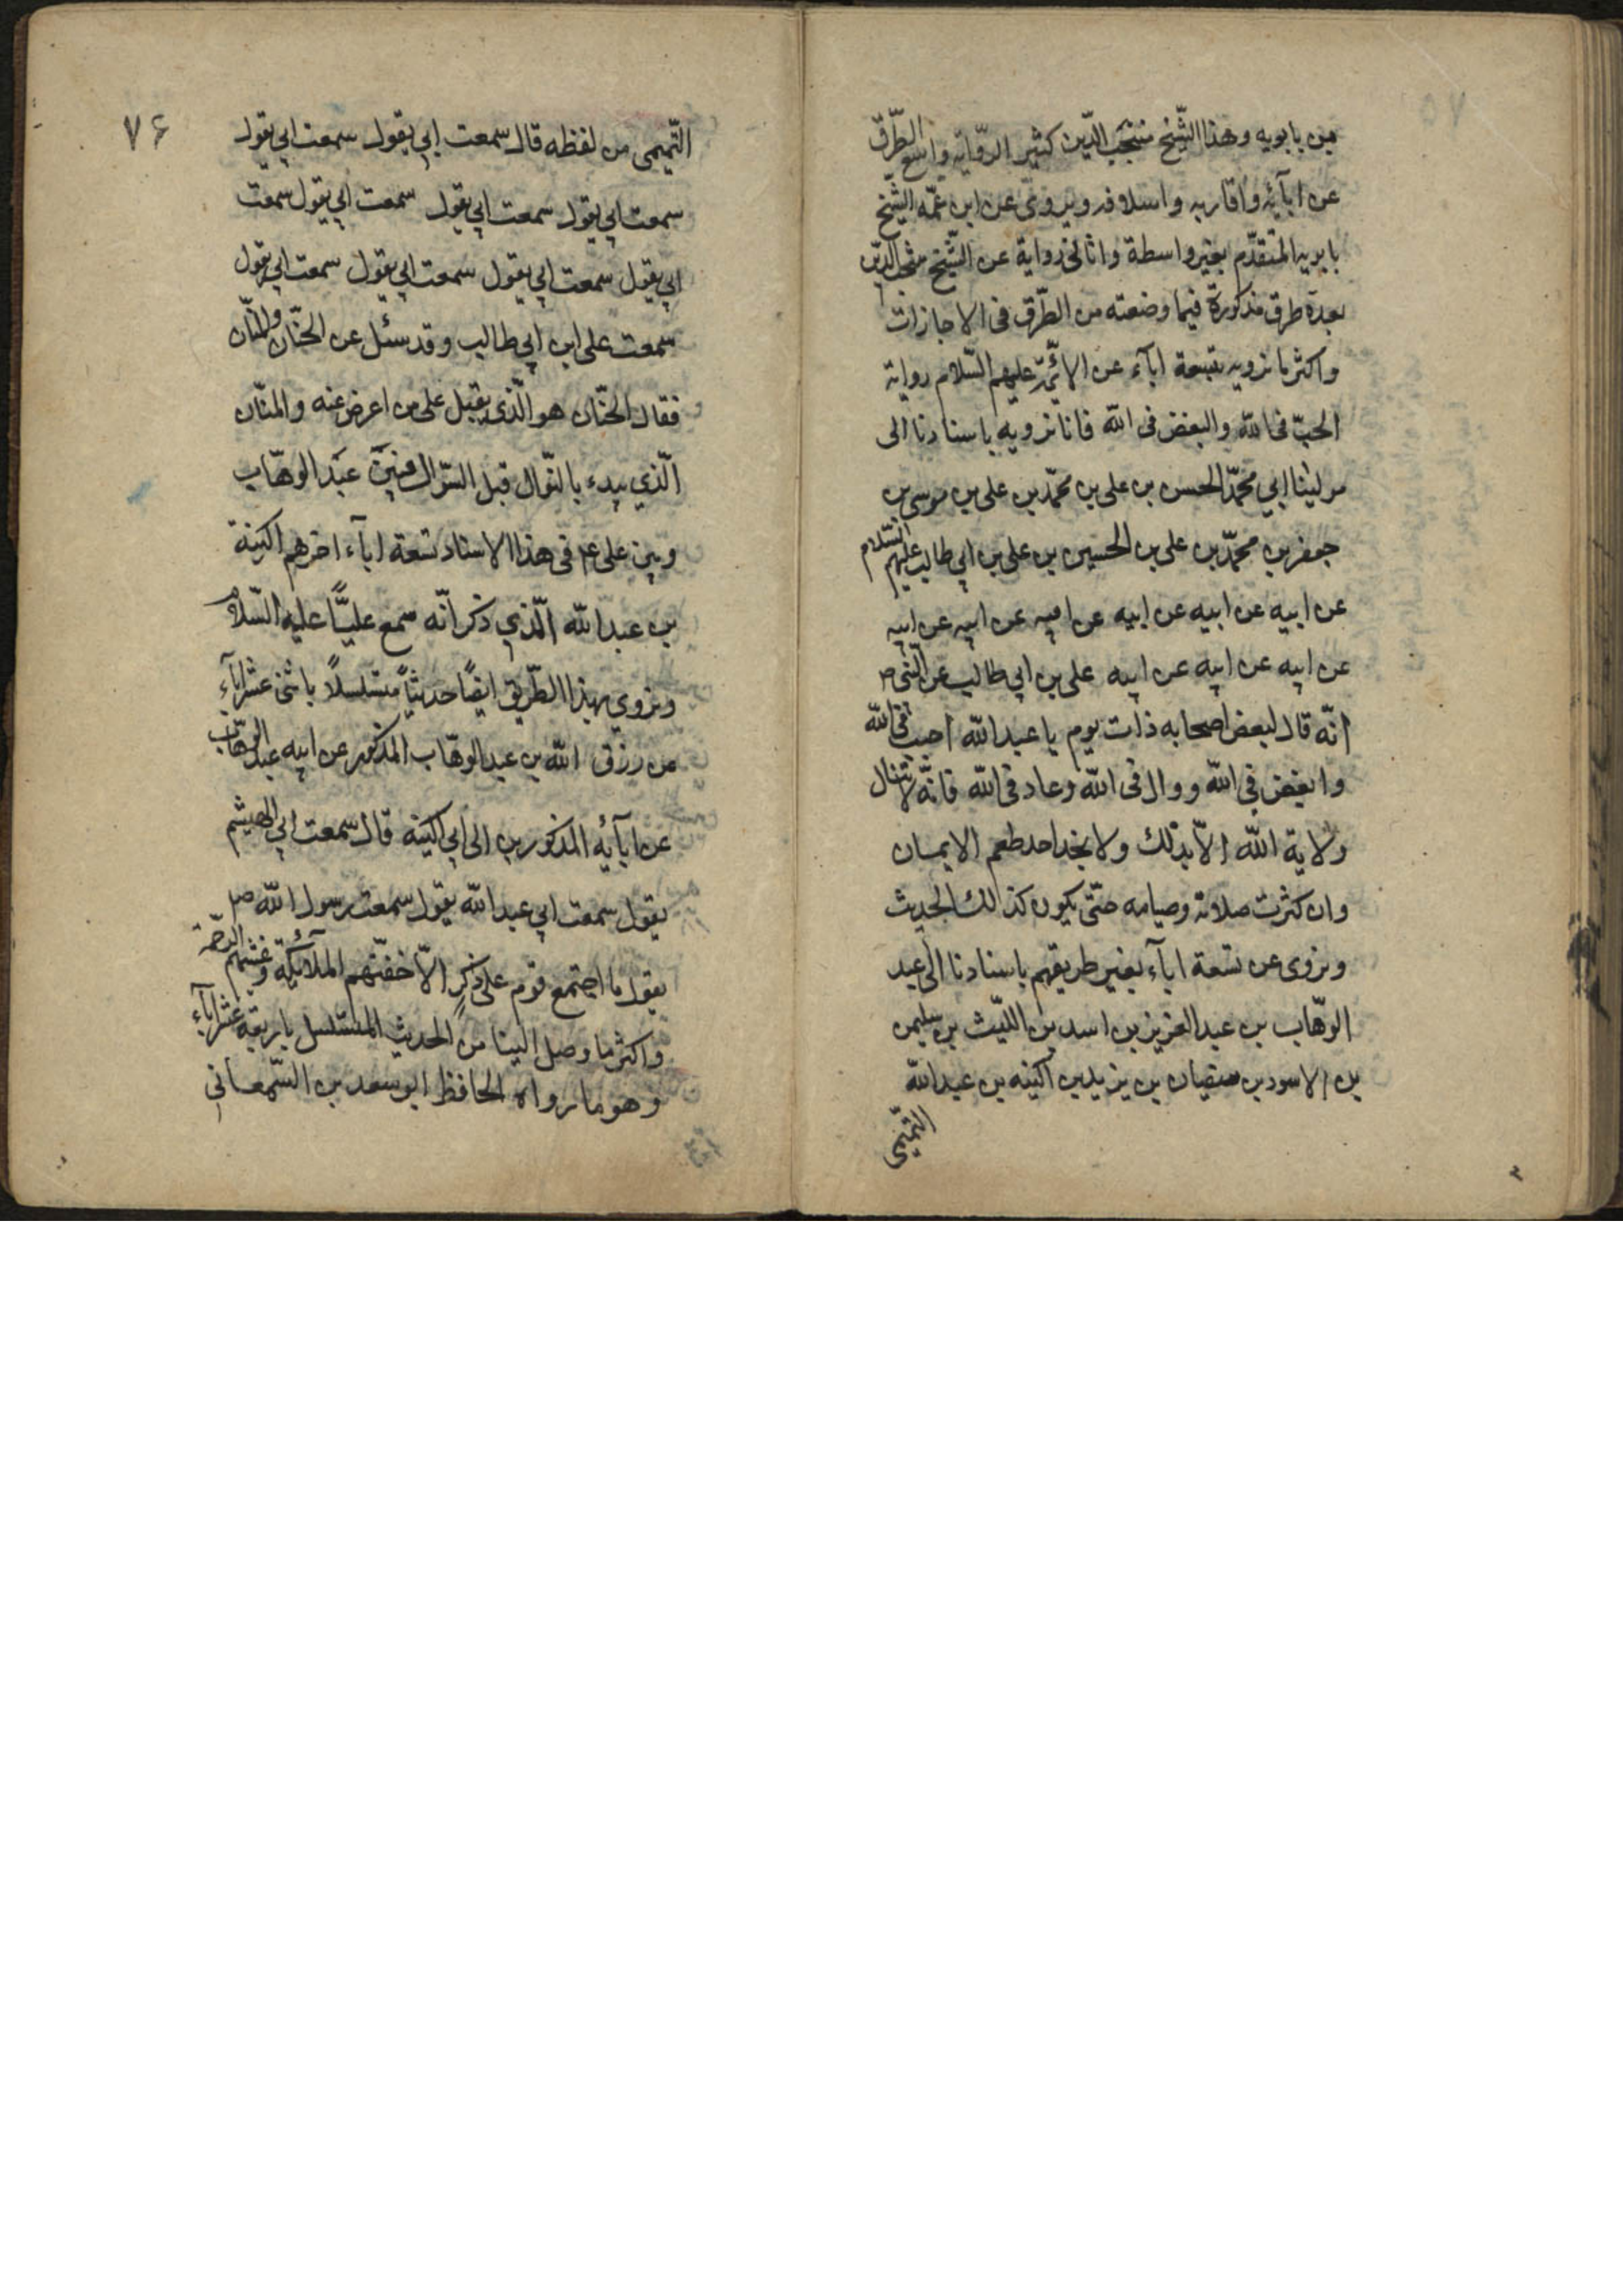 من بابويه وهذا الشّيخ منتجب الدّين كثير الرّواية واسع الطّرق
عن ابآئه واقاربه واسلافه ويروى عن ابن عمّه الشّيخ
بابويه المتقدّم بغير واسطة وانا لى رواية عن الشّيخ منتجب الدّين
بعدة طرق مذكورة فيما وضعته من الطّرق فى الاجازات
واكثر ما نرويه بتسعة ابآء عن الائمّة عليهم السّلام رواية
الحبّ فى الله والبغض فى الله فانا نرويه باسنادنا الى
مولينا ابي محمّد الحسن بن على بن محمّد بن على بن موسى بن
جعفر بن محمّد بن على بن الحسين بن على بن ابي طالب عليهم السّلام
عن ابيه عن ابيه عن ابيه عن ابيه عن ابيه عن ابيه
عن ابيه عن ابيه عن ابيه على بن ابي طالب عن النّبى ص
انّه قال لبعض اصحابه ذات يوم يا عبد الله احبب فى الله
وابغض فى الله ووال فى الله وعاد فى الله فانّه لا تنال
ولاية الله الّا بذلك ولا يجد احد طعم الايمان
وان كثرت صلاته وصيامه حتّى يكون كذالك الحديث
ونروى عن تسعة ابآء بغير طريقهم باسنادنا الى عبد
الوهّاب بن عبد العزيز بن اسد بن اللّيث بن سليمن
بن الاسود بن سفيان بن يزيد بن اكينه بن عبد الله
التّميمى
٧۶
التّميمى من لفظه قال سمعت ابي يقول سمعت ابي يقول
سمعت ابي يقول سمعت ابي يقول سمعت ابي يقول سمعت
ابي يقول سمعت ابي يقول سمعت ابي يقول سمعت ابي يقول
سمعت على ابن ابي طالب وقد سئل عن الحنّان والمنّان
فقال الحنّان هو الّذى يقبل على من اعرض عنه والمنّان
الّذي يبدء بالنّوال قبل السّؤال فبين عبد الوهّاب
وبين على ع فى هذا الاسناد تسعة ابآء اخرهم اكينة
بن عبد الله الّذي ذكر انّه سمع عليّا عليه السّلام
ونروي بهذا الطّريق ايضًا حديثًا متسلسلًا باثنى عشر ابآء
من رزق الله بن عبد الوهّاب المذكور عن ابيه عبد الوهّاب
عن ابآئه المذكورين الى ابي اكينه قال سمعت ابي الهيثم
يقول سمعت ابي عبد الله يقول سمعت رسول الله ص
يقول ما اجتمع قوم على ذكرٍ الّا حفّتهم الملآئكة وغشيتهم الرّحمة
واكثر ما وصل الينا من الحديث المتسلسل باربعة عشر ابآء
وهو ما رواه الحافظ ابو سعد بن السّمعاني